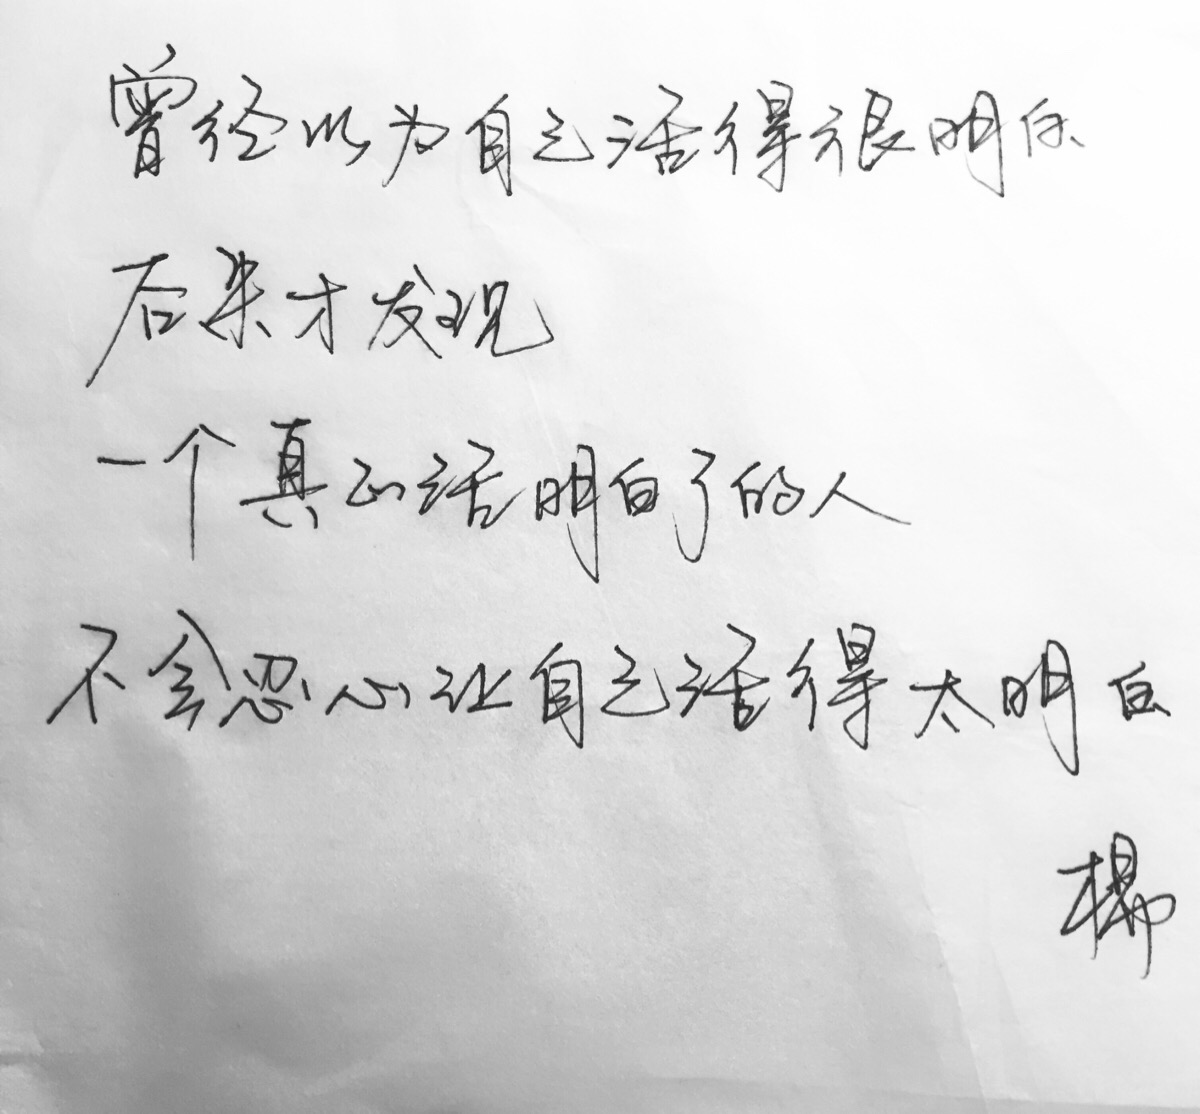 曾经以为自己活得很明白
后来才发现
一个真正活明白了的人
不会忍心让自己活得太明白